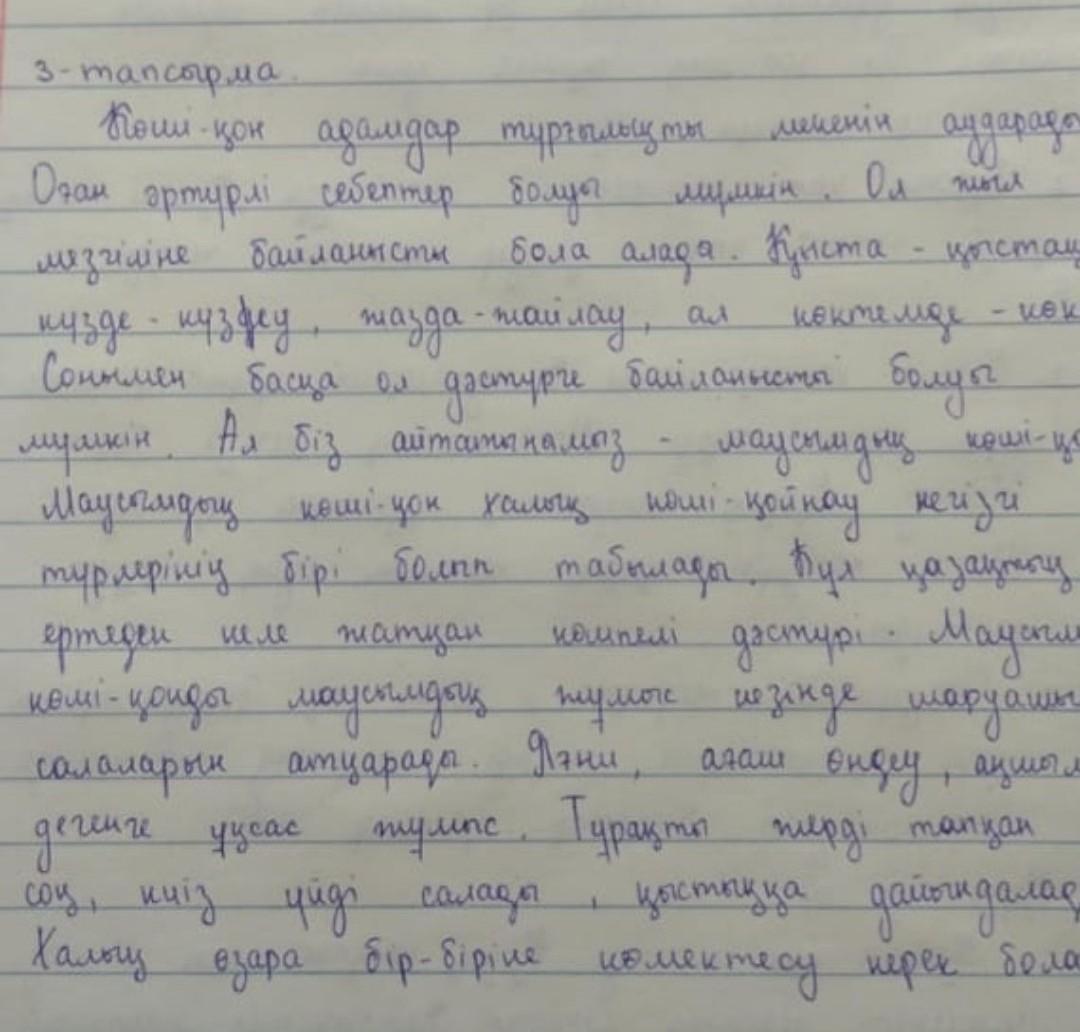 3-тапсырма.
Көші-қон адамдар тұрғылықты мекенін аударады
Оған әртүрлі себептер болуы мүмкін. Ол жыл
мезгіліне байланысты бола алада. Қыста - қыстау
күзде - күздеу, жазда-жайлау, ал көктемде - көк
Сонымен басқа ол дәстүрге байланысты болуы
мүмкін. Ал біз айтатынамыз - маусымдық көші-қо
Маусымдық көші-қон халық көші-қойнау негізгі
түрлерінің бірі болып табылады. Бұл қазақтың
ертеден келе жатқан көшпелі дәстүрі. Маусым
көші-қонды маусымдық жұмыс кезінде шаруашы
салаларын атқарады. Яғни, ағаш өңдеу, аңшыл
дегенге ұқсас жұмыс. Тұрақты жерді тапқан
соң, киіз үйді салады, қыстыққа дайындалад
Халық өзара бір-біріне көмектесу керек бола